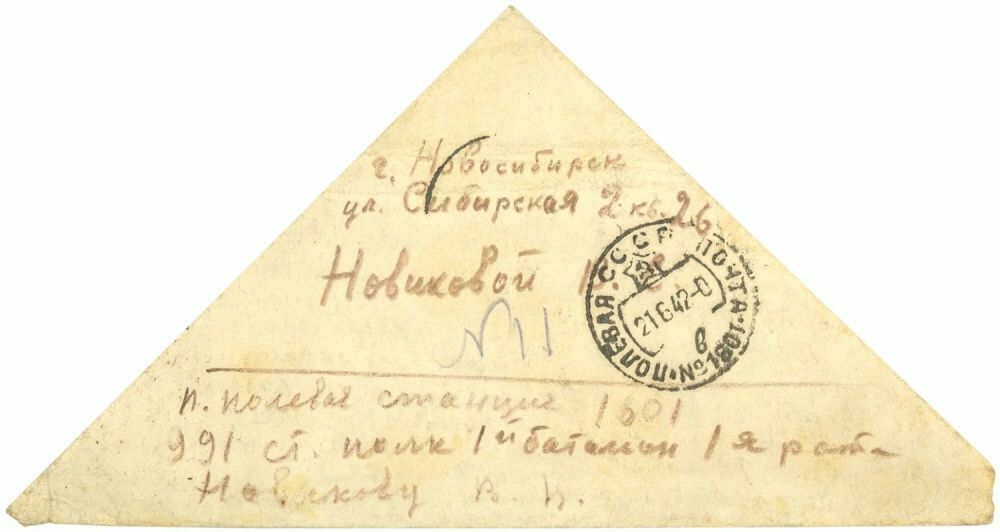 г. Новосибирск
ул. Сибирская 2 кв. 26
Новиковой
СССР
ПОЛЕВАЯ ПОЧТА • №1601 •
21.6.42
в
N 11
п. полевая станция 1601
991 ст. полк 1й батальон 1я рота
Новикову В. И.